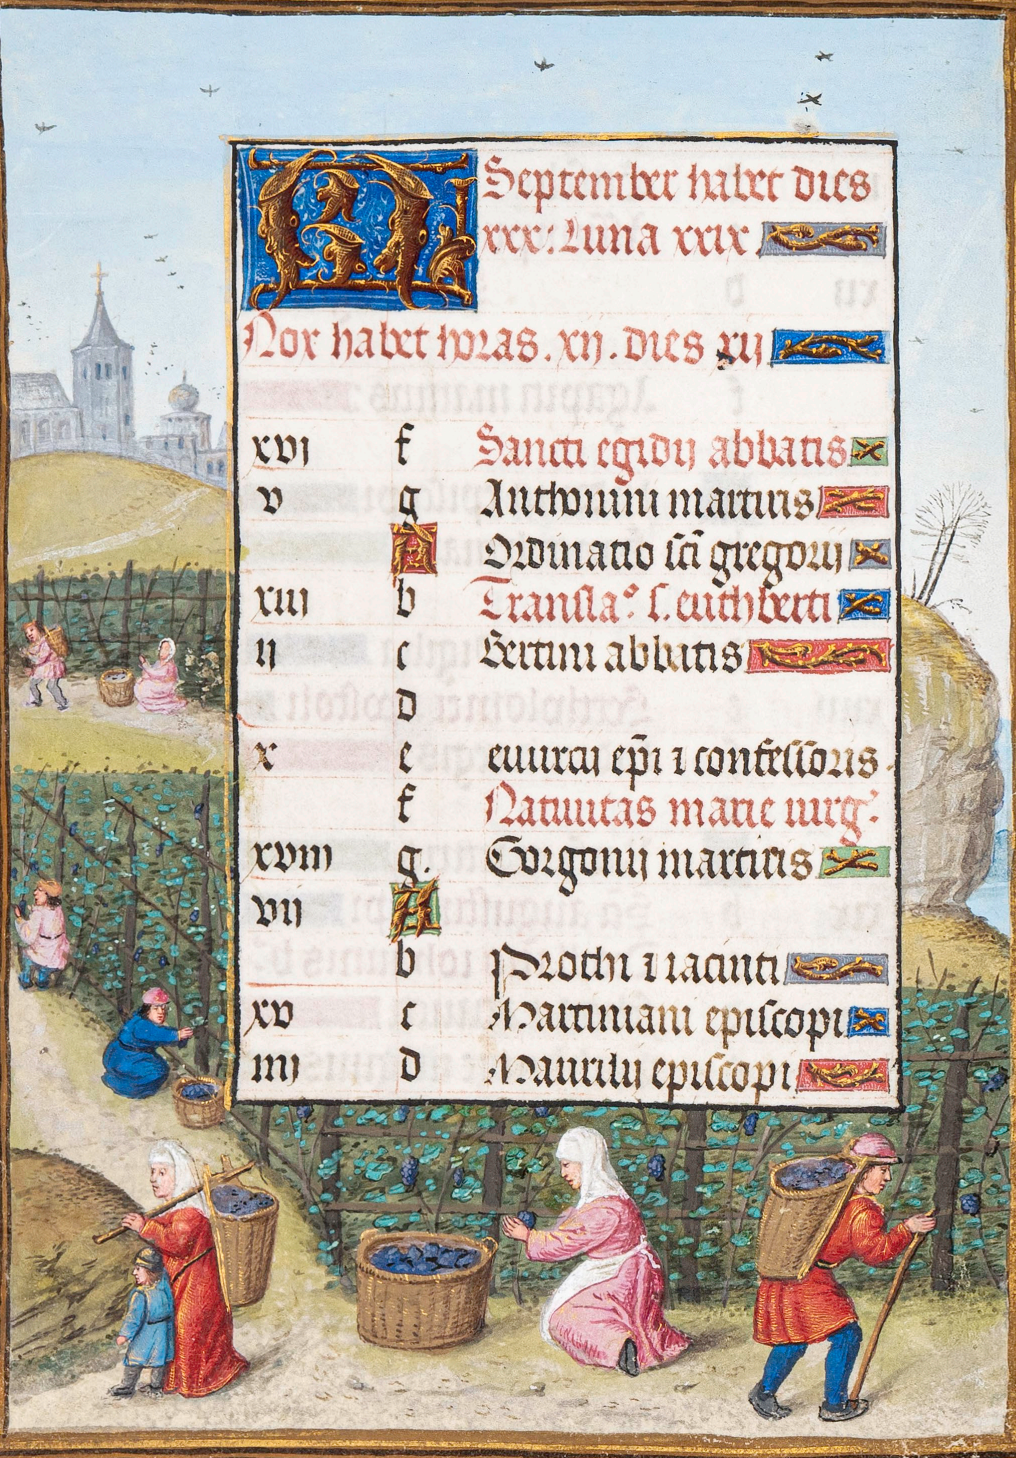 KL September habet dies
xxx: Luna xxix.
Nox habet horas. xij. dies xij
xvj f Sancti egidij abbatis
v g Anthonini martiris
A Ordinatio sc̄i gregorij
xiij b Transla° s. cuthberti
ij c Bertini abbatis
d
x e euurcij ep̄i ⁊ confessoris.
f Natiuitas marie uirg̃.
xviij g. Gorgonij martiris
vij A
b Prothi ⁊ iacincti
xv c Martiniani episcopi
iiij d Maurilij episcopi